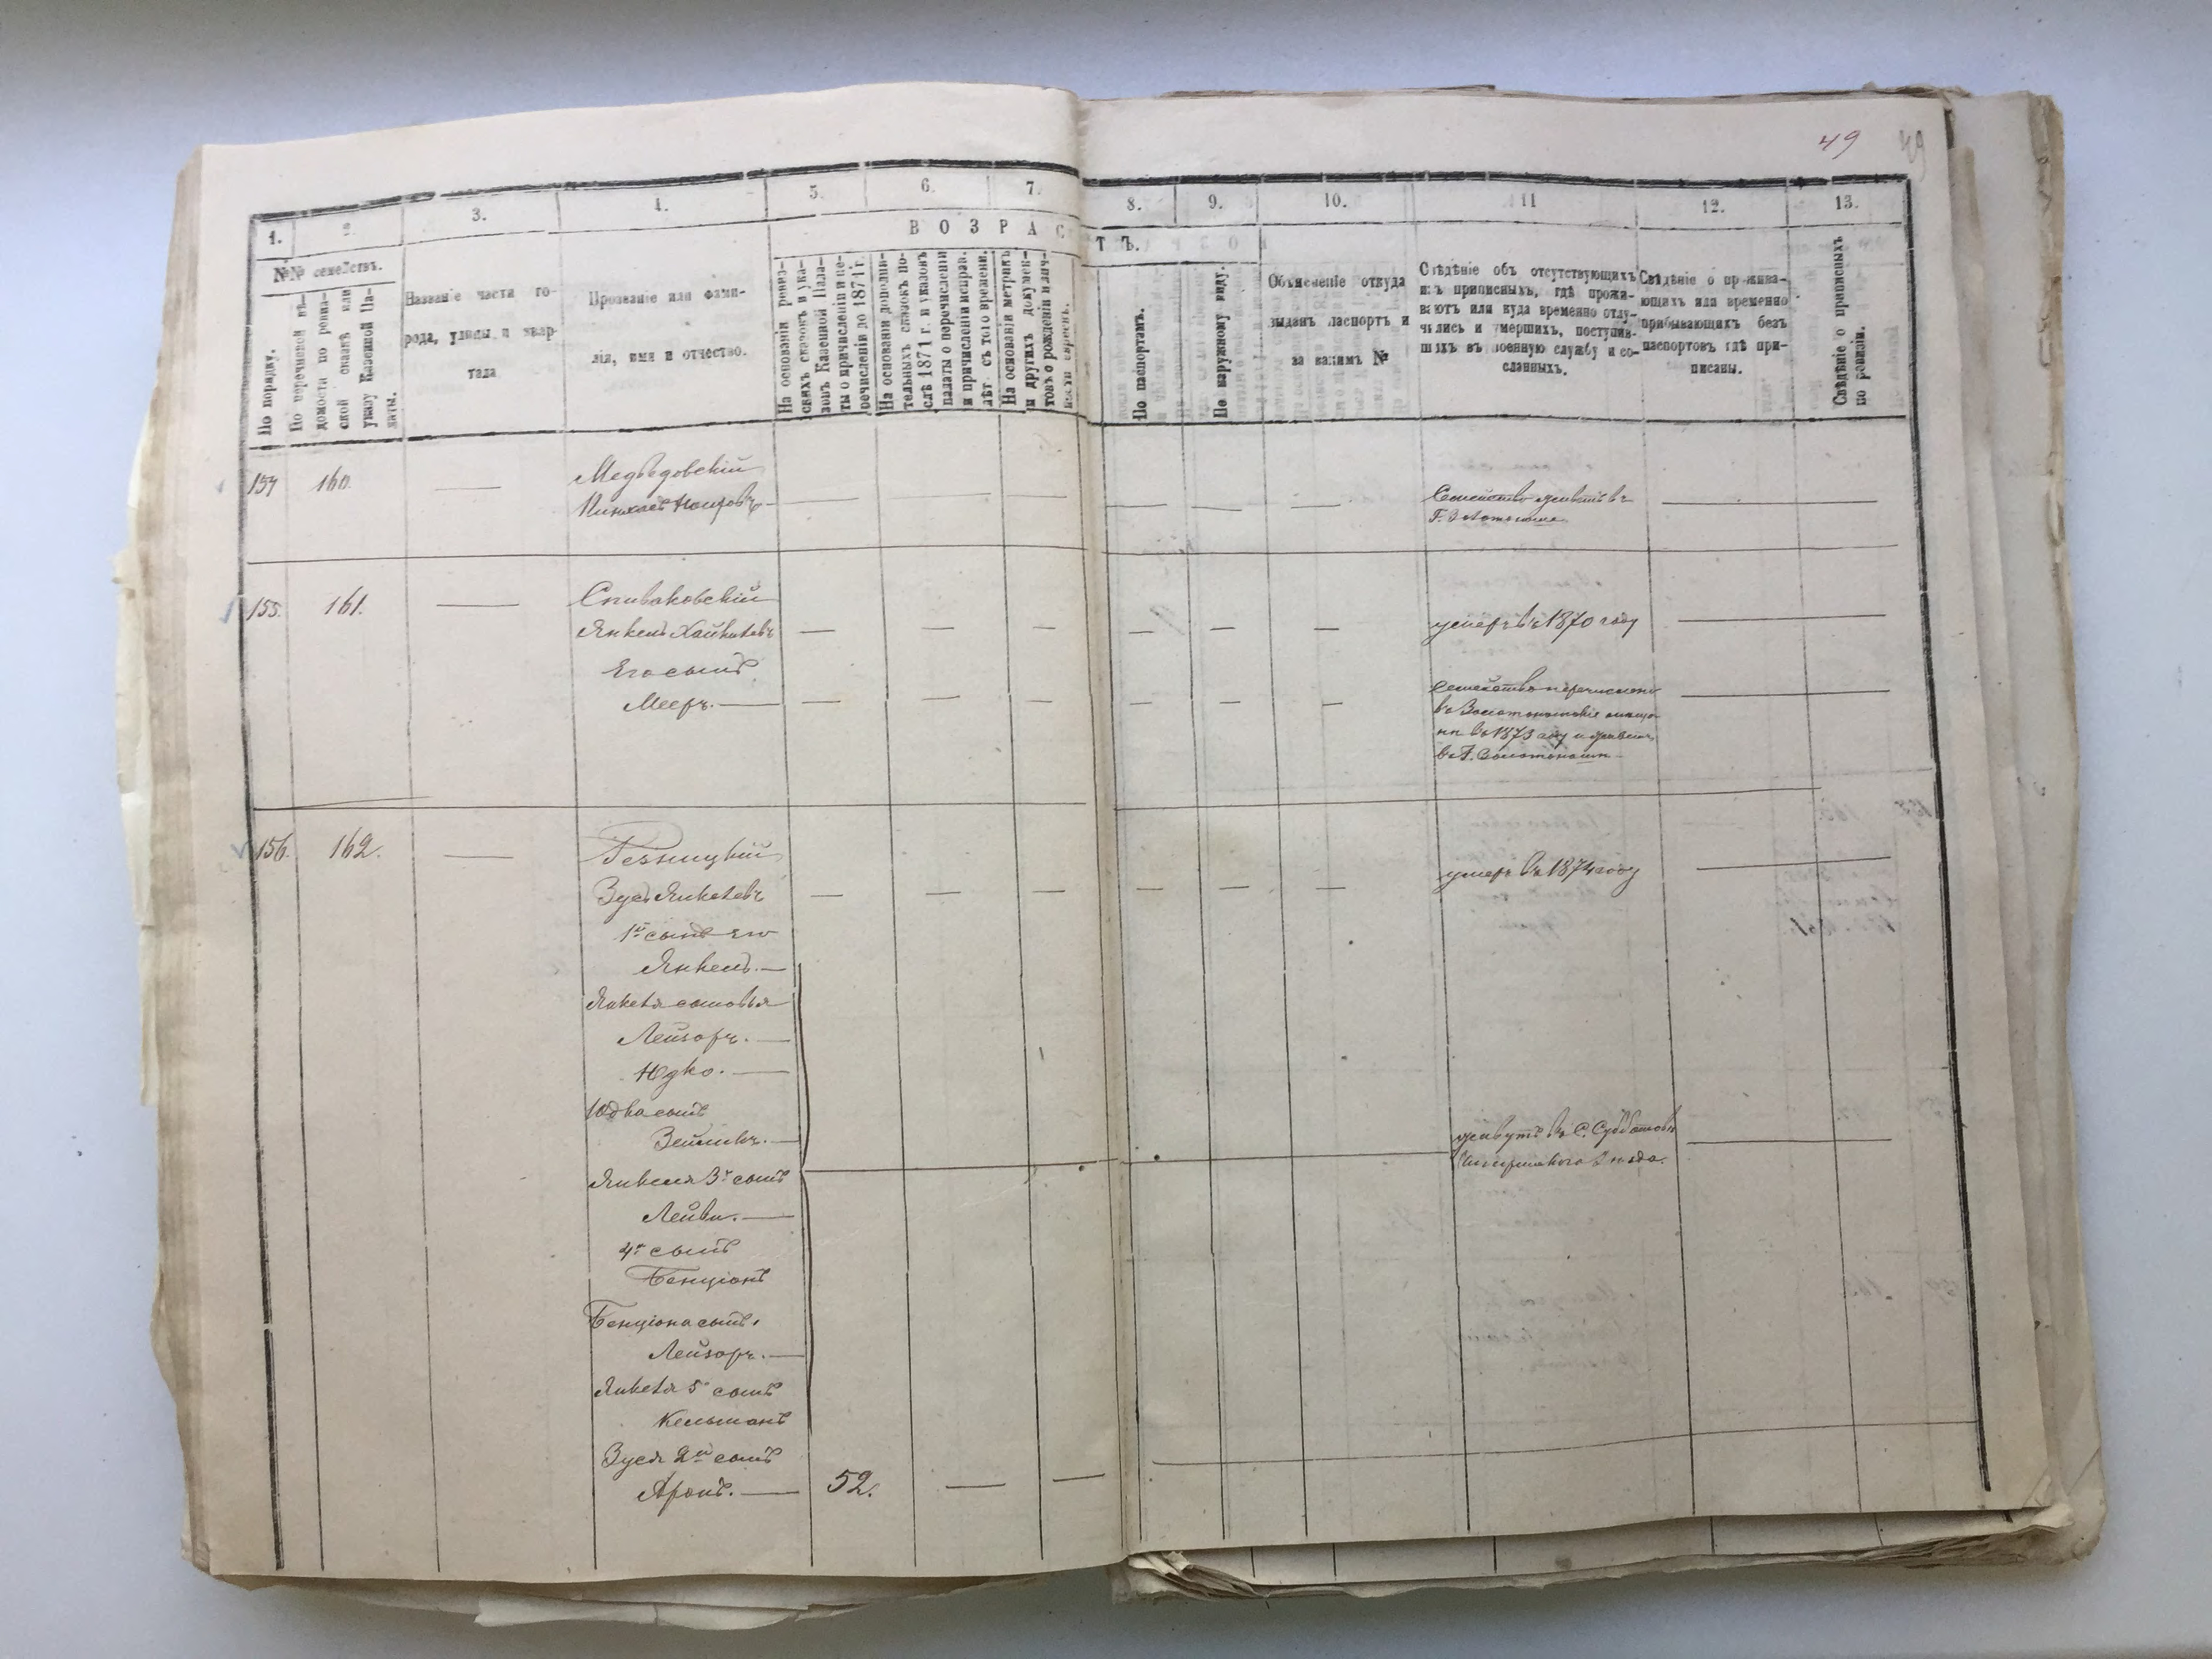 49
49
1.
2.
3.
4.
5.
6.
7.
8.
9.
10.
11
12.
13.
ВОЗРАСТЪ.
№№ семействъ.
По порядку.
По перечневой вѣ-
домости по ревиз-
ской сказкѣ или
указу Казенной Па-
латы.
Названіе части го-
рода, улицы и квар-
тала
Прозваніе или фами-
лія, имя и отчество.
На основаніи ревиз-
скихъ сказокъ и ука-
зовъ Казенной Пала-
ты о причисленіи и пе-
речисленіи до 1871 г.
На основаніи дополни-
тельныхъ сказокъ по-
слѣ 1871 г. и указовъ
палаты о перечисленіи
и причисленіи исправ.
лѣт. съ того времени.
На основаніи метрикъ
и другихъ докумен-
товъ о рожденіи
По паспортамъ.
По наружному виду.
Объясненіе откуда
выданъ паспортъ и
за какимъ №
Свѣдѣніе объ отсутствующихъ
изъ приписныхъ, гдѣ прожи-
ваютъ или куда временно отлу-
чились и умершихъ, поступив-
шихъ въ военную службу и со-
сланныхъ.
Свѣдѣніе о прожива-
ющихъ или временно
прибывающихъ безъ
паспортовъ гдѣ при-
писаны.
Свѣдѣніе о приписныхъ
по ревизіи.
154 160. — Медвѣдовскій
Пинхасъ — — — — — — Семейство живетъ въ —
Г. Золотоноше
155. 161. — Спиваковскій
Янкель — — — — — — умеръ въ 1870 году —
Его сынъ
Мееръ. — — — — — — — Семейство перечислено —
въ Золотоношскіе мѣща-
не въ 1873 году и живетъ
въ Г. Золотоноше
156. 162. — Резницкій
Зусь Янкелевъ — — — — — — умеръ въ 1874 году —
1й сынъ его
Янкель. —
Янкеля сыновья
Лейзоръ. —
Юдко. —
Юдка сынъ
Зейликъ. — живутъ въ С. Субботовѣ —
Чигиринского Уѣзда.
Янкеля 3й сынъ
Лейба. —
4й сынъ
Бенціонъ
Бенціона сынъ.
Лейзоръ. —
Янкеля 5й сынъ
Кельманъ
Зуся 2й сынъ
Аронъ. — 52. — —